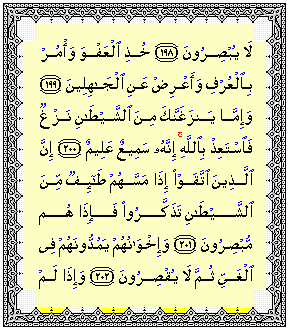 لَا يُبْصِرُونَ ﴿١٩٨﴾ خُذِ ٱلْعَفْوَ وَأْمُرْ
بِٱلْعُرْفِ وَأَعْرِضْ عَنِ ٱلْجَٰهِلِينَ ﴿١٩٩﴾
وَإِمَّا يَنزَغَنَّكَ مِنَ ٱلشَّيْطَٰنِ نَزْغٌ
فَٱسْتَعِذْ بِٱللَّهِ ۚ إِنَّهُۥ سَمِيعٌ عَلِيمٌ ﴿٢٠٠﴾ إِنَّ
ٱلَّذِينَ ٱتَّقَوْا۟ إِذَا مَسَّهُمْ طَٰٓئِفٌ مِّنَ
ٱلشَّيْطَٰنِ تَذَكَّرُوا۟ فَإِذَا هُم
مُّبْصِرُونَ ﴿٢٠١﴾ وَإِخْوَٰنُهُمْ يَمُدُّونَهُمْ فِى
ٱلْغَىِّ ثُمَّ لَا يُقْصِرُونَ ﴿٢٠٢﴾ وَإِذَا لَمْ